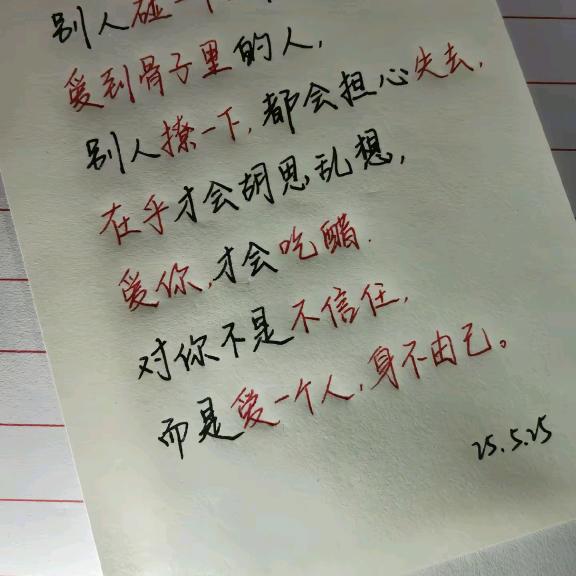 别人碰一下
爱到骨子里的人,
别人撩一下,都会担心失去,
在乎才会胡思乱想,
爱你,才会吃醋.
对你不是不信任,
而是爱一个人,身不由己。
25.5.25